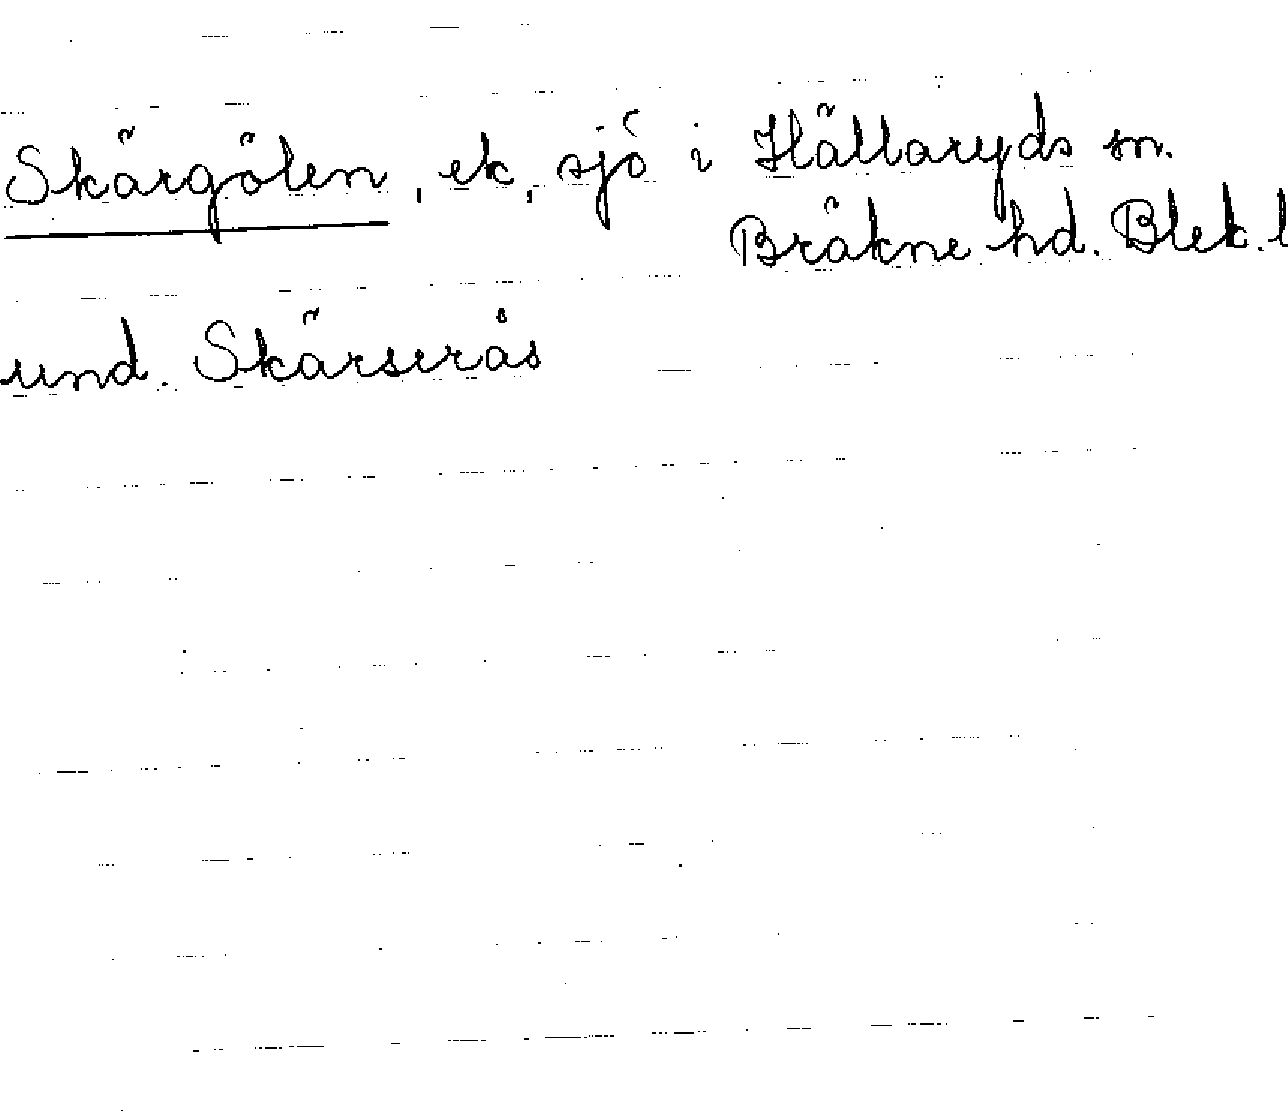 Skärgölen, ek, sjö i Hällaryds sn.
Bräkne hd. Blek. l
und. Skärserås